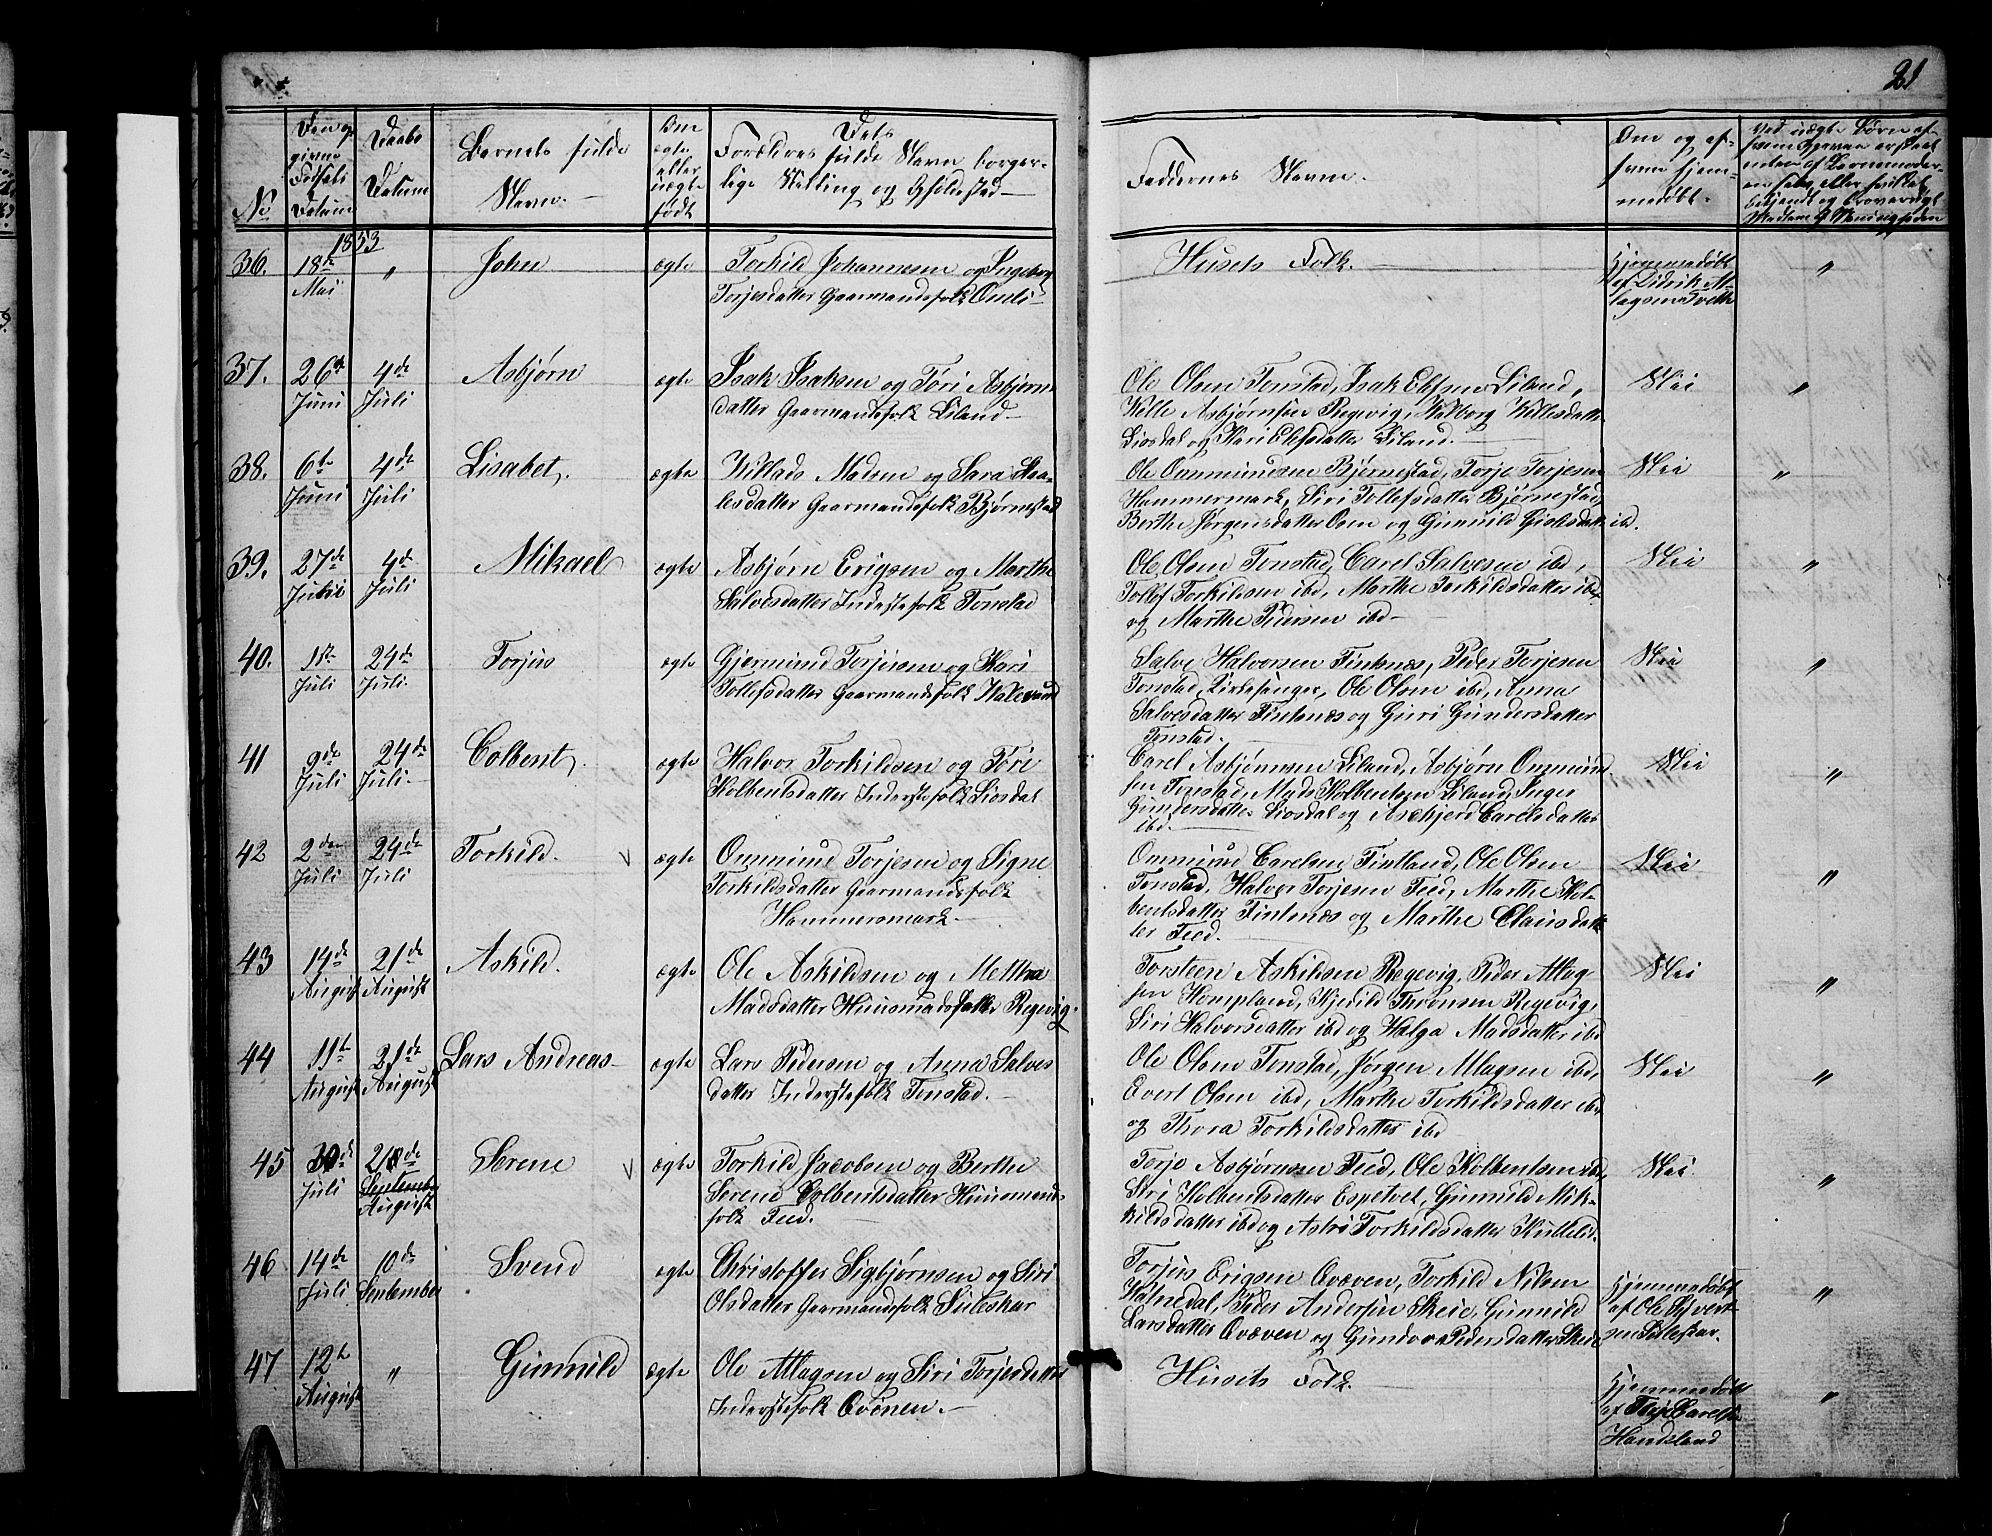 21
No
Den op-
givne
Fødsels
Datum
Daabs
Datum
Barnets fulde
Navn.
Om
ægte
eller
uægte
født
Dets
Forældres fulde Navn borger-
lige Stilling og Opholdsstad
Faddernes Navne.
Om og af
hvem hjem-
medøbt.
Ved uægte Børn af
1853
36. 18de Mai " John ægte
Torkild Johannesen og Ingeborg
Torjesdatter Gaarmandsfolk Omli
Husets Folk.
Hjemmedøbt
af Didrik A-
lagsen Tvette
"
37. 26de Juni 4de Juli Asbjørn ægte
Isak Isaksen og Tøri Asbjørns
datter Gaarmandsfolk Liland
Ole Olsen Tonstad, Isak Elefsen Liland,
Wille Asbjørnsen Regevig, Walborg Willesdatter
Liosdal og Kari Elefsdatter Liland.
Nei "
38. 6te Juni 4de Juli Lisabet ægte
Willads Madsen og Sara Laa-
lesdatter Gaarmandsfolk Bjørnestad
Ole Ommundsen Bjørnestad, Torje Torjesen
Hammermark, Siri Tollefsdatter Bjørnestad
Berthe Jørgensdatter Osen og Gunnild ibd.
Nei "
39. 27de Juni 4de Juli Mikael ægte
Asbjørn Erigsen og Marthe
Salvesdatter Inderstefolk Tonstad
Ole Olsen Tonstad, Carel Salvesen ibd,
Tollef Torkildsen ibd, Marthe Torkildsdatter ibd
og Marthe Pedersen ibd
Nei "
40. 1ste Juli 24de Juli Torjus ægte
Gjermund Torjusen og Kari
Tollefsdatter Gaarmandsfolk Walevand
Salve Halvorsen Fintnæs, Peder Torjesen
Tonstad, Kirkesanger, Ole Olsen ibd, Anna
Salvesdatter Fintnæs og Guri Gundersdatter
Tonstad.
Nei "
41 9de Juli 24de Juli Colbent ægte
Halvor Torkildsen og Tøri
Kolbentsdatter Inderstefolk Liosdal
Carel Asbjørnsen Liland, Asbjørn Ommund
sen Tonstad, Mads Kolbentsen Liland, Inger
Gundersdatter Liosdal og Askjerd Carelsdatter
ibd.
Nei "
42 2den Juli 24de Juli Torkild. ægte
Ommund Torjesen og Signe
Torkildsdatter Gaarmandsfolk
Hammersmark.
Ommund Carelsen Fintland, Ole Olsen
Tonstad, Halvor Torjesen Feed, Marthe Kol-
bentsdatter Fintnæs og Marthe Clausdat-
ter Feed.
Nei "
43 14de August 21de August Askild. ægte
Ole Askildsen og Mettha
Madsdatter Huusmandsfolk Regevig.
Torsteen Askildsen Regevig, Peder Atlag-
sen Hompland, Kjetild Thronsen Regevig,
Siri Halvorsdatter ibd og Helga Madsdatter ibd
Nei "
44 11te August 21de August Lars Andreas ægte
Lars Pedersen og Anna Salves
datter Inderstefolk Tonstad.
Ole Olsen Tonstad, Jørgen Atlagsen ibd,
Evert Olsen ibd, Marthe Torkildsdatter ibd
og Thora Torkildsdatter ibd
Nei "
45 30de Juli 28de September August Serene ægte
Torkild Jacobsen og Berthe
Serene Colbentsdatter Huusmands-
folk Feed.
Torje Asbjørnsen Feed, Ole Kolbentsen ibd,
Siri Kolbentsdatter Espetvet, Gunnild Mik-
kildsdatter ibd og Astri Torkildsdatter
Nei "
46 14de Juli 10de September Svend ægte
Christoffer Sigbjørnsen og Siri
Olsdatter Gaarmandsfolk Suleskar
Torjus Erigsen Qvæven, Torkild Nilsen
Peder Andersen Skeie, Gunnild
Larsdatter Qvæven og Gundvor Pedersdatter Skeie
Hjemmedøbt
af Ole Syvert-
sen Suleskar.
"
47 12te August " Gunnild ægte
Ole Atlagsen og Siri Torjesdatter
Inderstefolk Qvinen.
Husets Folk.
Hjemmedøbt
af Torje Carels
Haneland
"